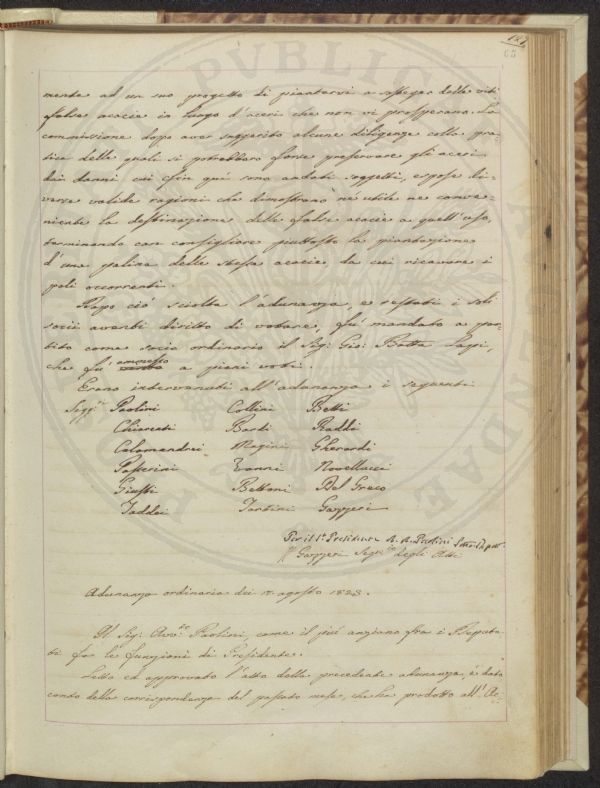 127
65
mente ad un suo progetto di piantarvi a sostegno delle viti
false acacie in luogo d'aceri che non vi prosperano. La
commissione dopo aver suggerito alcune diligenze colla pra-
tica delle quali si potrebbero forse preservare gli aceri
dai danni cui fin quì sono andati soggetti, espose di-
verse valide ragioni che dimostrano nè utile ne conve-
niente la destinazione delle false acacie a quell'uso,
terminando con consigliare piuttosto la piantazione
d'una palina delle stesse acacie da cui ricavare i
pali occorrenti.
Dopo ciò sciolta l'adunanza, e restati i soli
socii aventi diritto di votare, fù mandato a par-
tito come socio ordinario il Sig: Gio: Batta
che fu ammesso a pieni voti.
Erano intervenuti all'adunanza i seguenti
Sigg:ri Paolini Collini Betti
Chiarenti Bardi Raddi
Calamandrei Magini Gherardi
Passerini Vanni Novellucci
Giusti Bettoni Del Greco
Taddei Tartini Gazzeri
Per il S.r Presidente A. A. Paolini
Gazzeri Seg.rio degli Atti
Adunanza ordinaria dei agosto 1823.
Il Sig: Avv:to Paolini, come il più anziano fra i Deputa-
ti fa le funzioni di Presidente.
Letto ed approvato l'atto della precedente adunanza, è dato
conto della corrispondenza del passato mese, che ha prodotto all'Ac-
PUBLICA